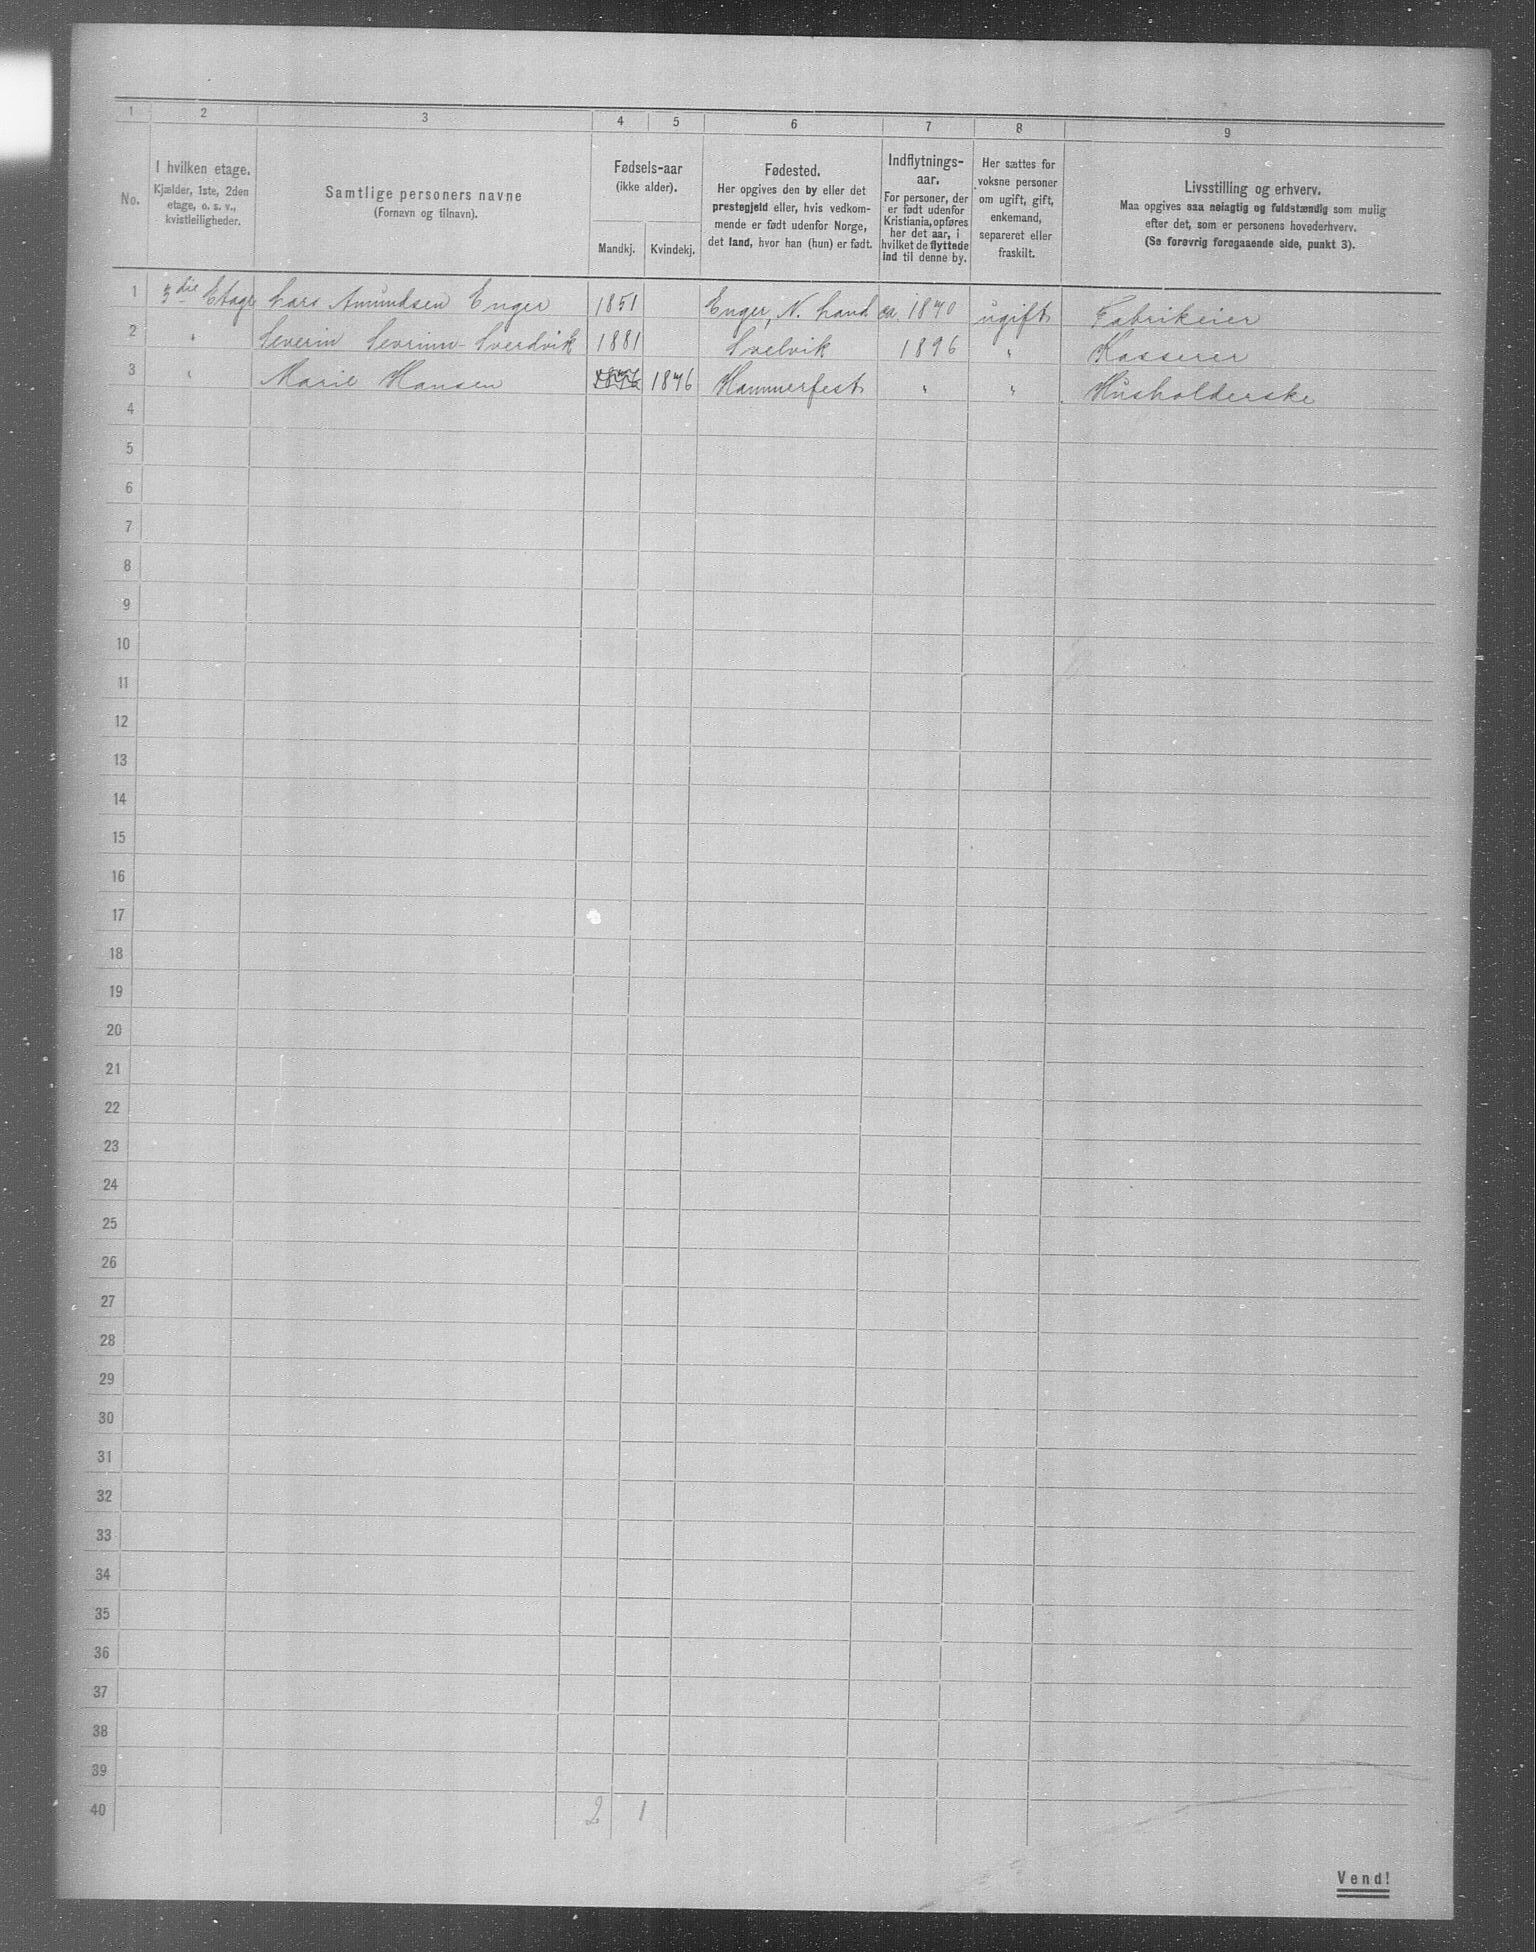 1 2 3 4 5 6 7 8 9
No.
I hvilken etage.
Kjælder, 1ste, 2den
etage, o. s. v.,
kvistleiligheder.
Samtlige personers navne
(Fornavn og tilnavn).
Fødsels-aar
(ikke alder).
Mandkj. Kvindekj.
Fødested.
Her opgives den by eller det
prestegjeld eller, hvis vedkom-
mende er født udenfor Norge,
det land, hvor han (hun) er født.
Indflytnings-
aar.
For personer, der
er født udenfor
Kristiania, opføres
her det aar, i
hvilket de flyttede
ind til denne by.
Her sættes for
voksne personer
om ugift, gift,
enkemand,
separeret eller
fraskilt.
Livsstilling og erhverv.
Maa opgives saa nøiagtig og fuldstændig som mulig
efter det, som er personens hovederhverv.
(Se forøvrig foregaaende side, punkt 3).
1 3die Etage Lars Amundsen Enger 1851 Enger, N. Land ca. 1870 ugift Fabrikeier
2 " Severin Sverdvik 1881 Svelvik 1896 " Kasserer
3 " Marie Hansen 1876 1876 Hammerfest " " Husholderske
4
5
6
7
8
9
10
11
12
13
14
15
16
17
18
19
20
21
22
23
24
25
26
27
28
29
30
31
32
33
34
35
36
37
38
39
40 2 1
Vend!